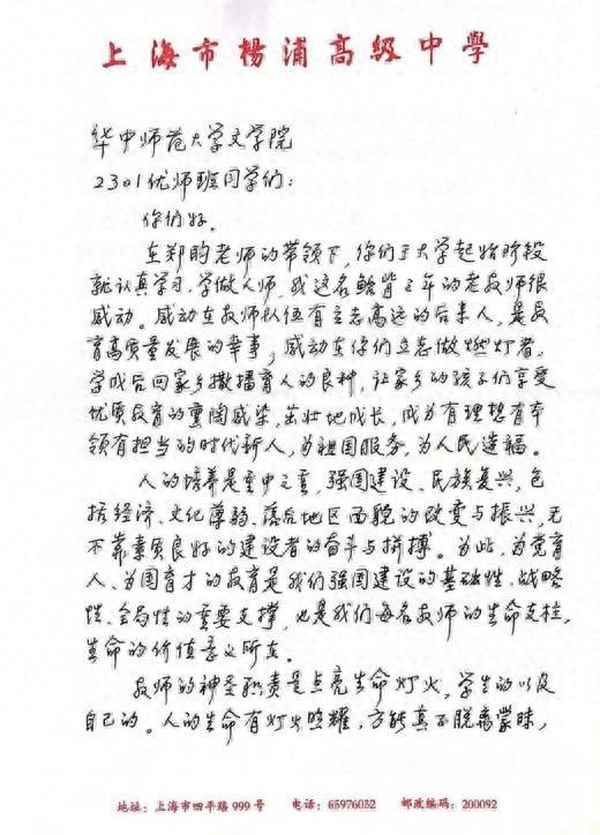 上海市杨浦高级中學
华中师范大学文学院
2301优师班同学们：
你们好。
在郑昀老师的带领下，你们在大学起始阶段
就认真学习，学做人师，我这名鲐背之年的老教师很
感动。感动在教师队伍有立志高远的后来人，是教
育高质量发展的幸事；感动在你们立志做燃灯者，
学成后回家乡撒播育人的良种，让家乡的孩子们享受
优质教育的熏陶感染，茁壮地成长，成为有理想有本
领有担当的时代新人，为祖国服务，为人民造福。
人的培养是重中之重，强国建设、民族复兴，包
括经济、文化薄弱、落后地区面貌的改变与振兴，无
不靠素质良好的建设者的奋斗与拼搏。为此，为党育
人、为国育才的教育是我们强国建设的基础性、战略
性、全局性的重要支撑，也是我们每名教师的生命支柱，
生命的价值意义所在。
教师的神圣职责是点亮生命灯火，学生的以及
自己的。人的生命有灯火照耀，方能真正脱离蒙昧，
地址：上海市四平路999号 电话：65976032 邮政编码：200092